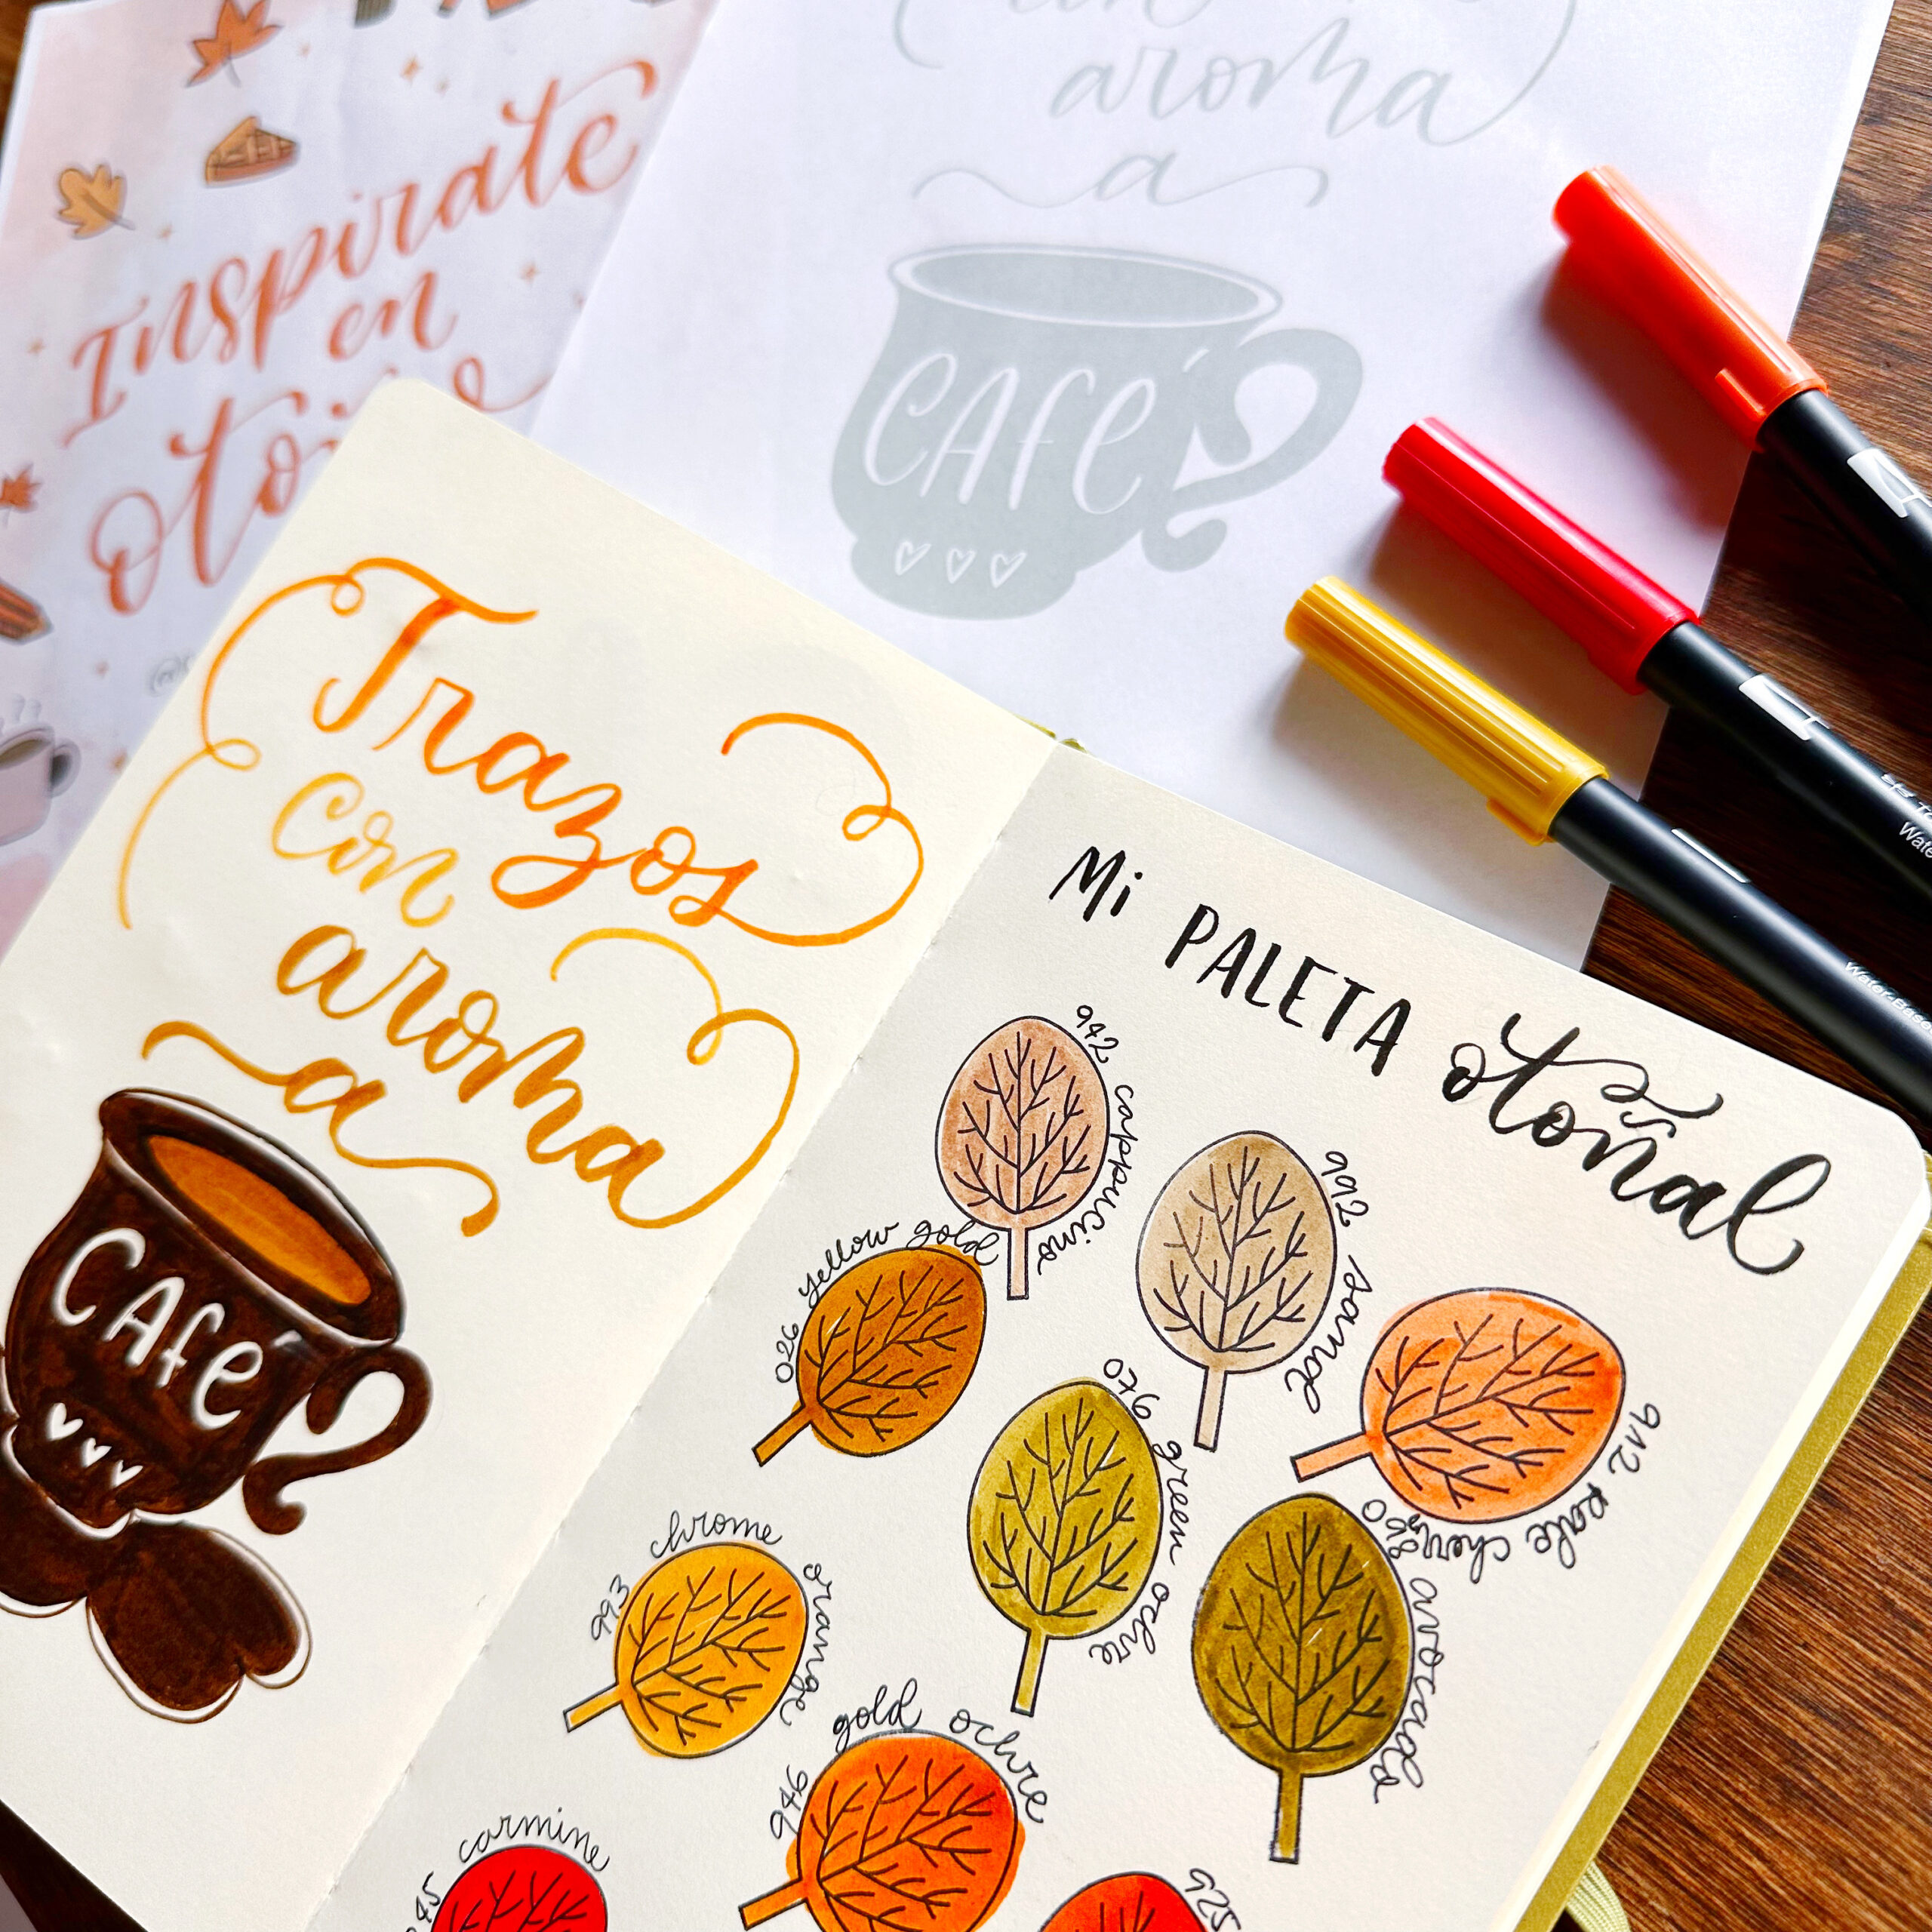 Inspirate
en
con
aroma
a
CAfé
Trazos
con
aroma
a
CAfé
Mi PALETA otoñal
942 cappucino
992 sand
026 yellow gold
912 pale cherry
076 green ochre
098 avocado
993 chrome orange
946 gold ochre
carmine
925